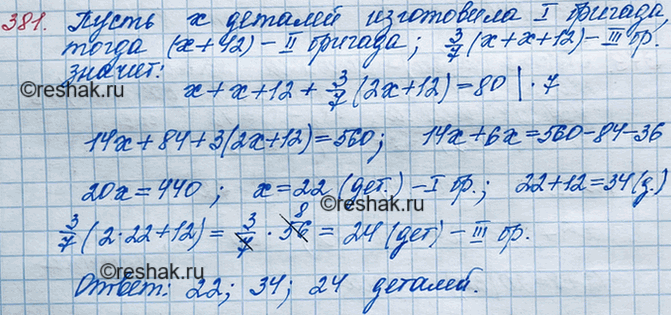 381. Пусть x деталей изготовила I бригада,
тогда (x+12) – II бригада; 3/7(x+x+12) – III бр.
значит:
©reshak.ru
x+x+12+3/7(2x+12)=80 | ·7
©reshak.ru
14x+84+3(2x+12)=560; 14x+6x=560–84–36
20x=440; x=22 (дет.) – I бр.; 22+12=34(д.)
3/7(2·22+12)=3/7·56 8=24 (дет) – III бр.
©reshak.ru
©reshak.ru
Ответ: 22; 34; 24 деталей.